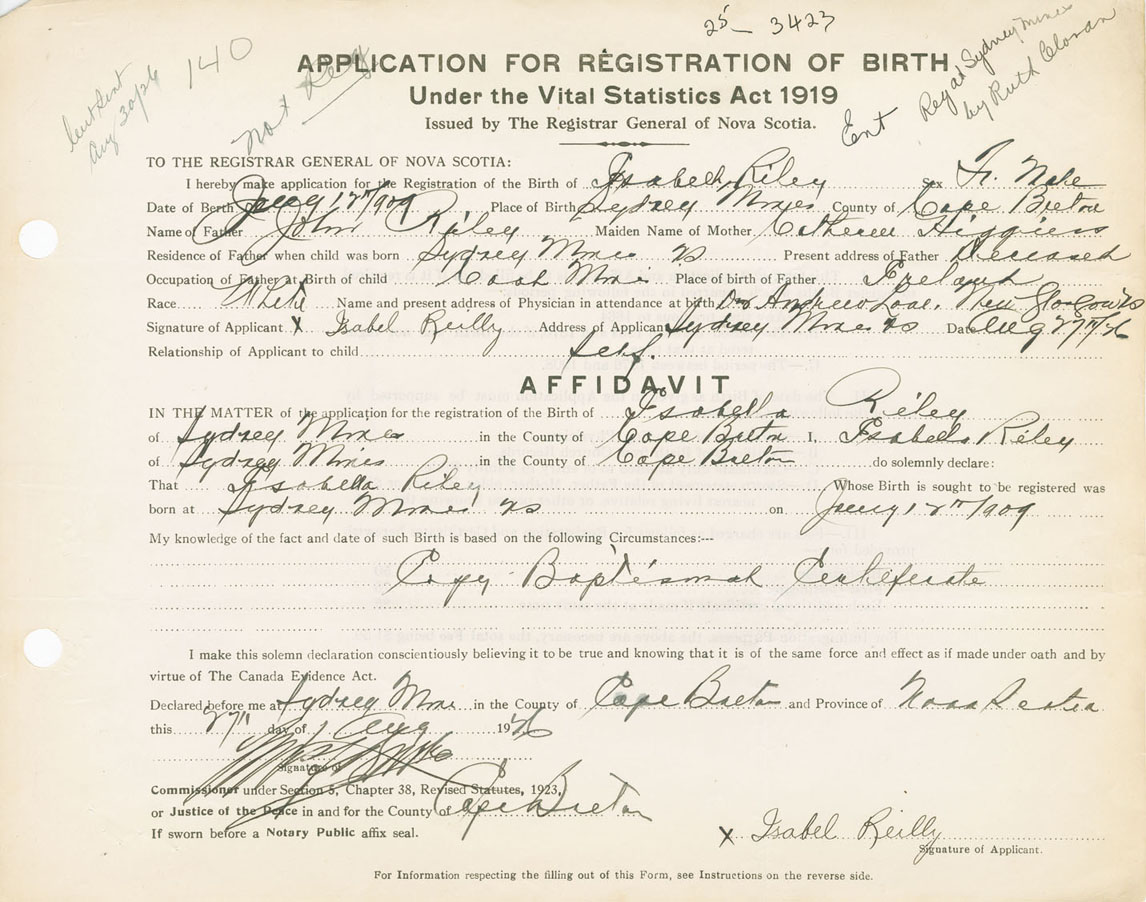 25 - 3423
140
Not Reg
Ent
Reg at Sydney Mines
by Ruth
APPLICATION FOR REGISTRATION OF BIRTH
Under the Vital Statistics Act 1919
Issued by The Registrar General of Nova Scotia.
TO THE REGISTRAR GENERAL OF NOVA SCOTIA:
I hereby make application for the Registration of the Birth of Isabella Riley Sex
Date of Berth 12" 1909 Place of Birth Sydney Mines County of Cape Breton
Name of Father John Riley Maiden Name of Mother Higgins
Residence of Father when child was born Sydney Mines NS Present address of Father Deceased
Occupation of Father at Birth of child Coal Mine Place of birth of Father
Race White Name and present address of Physician in attendance at birth Dr Andrew New Glasgow NS
Signature of Applicant X Isabel Reilly Address of Applicant Sydney Mines NS Date Aug 27"/26
Relationship of Applicant to child self.
AFFIDAVIT
IN THE MATTER of the application for the registration of the Birth of Isabella Riley
of Sydney Mines in the County of Cape Breton I, Isabella Riley
of Sydney Mines in the County of Cape Breton do solemnly declare:
That Isabella Riley Whose Birth is sought to be registered was
born at Sydney Mines NS on 12" 1909
My knowledge of the fact and date of such Birth is based on the following Circumstances:---
Copy Baptismal Certificate
I make this solemn declaration conscientiously believing it to be true and knowing that it is of the same force and effect as if made under oath and by
virtue of The Canada Evidence Act.
Declared before me at Sydney Mines in the County of Cape Breton and Province of Nova Scotia
this 27" day of Aug 1926
Signature of
Commissioner under Section 5, Chapter 38, Revised Statutes, 1923,
or Justice of the Peace in and for the County of Cape Breton
If sworn before a Notary Public affix seal.
X Isabel Reilly
Signature of Applicant.
For Information respecting the filling out of this Form, see Instructions on the reverse side.